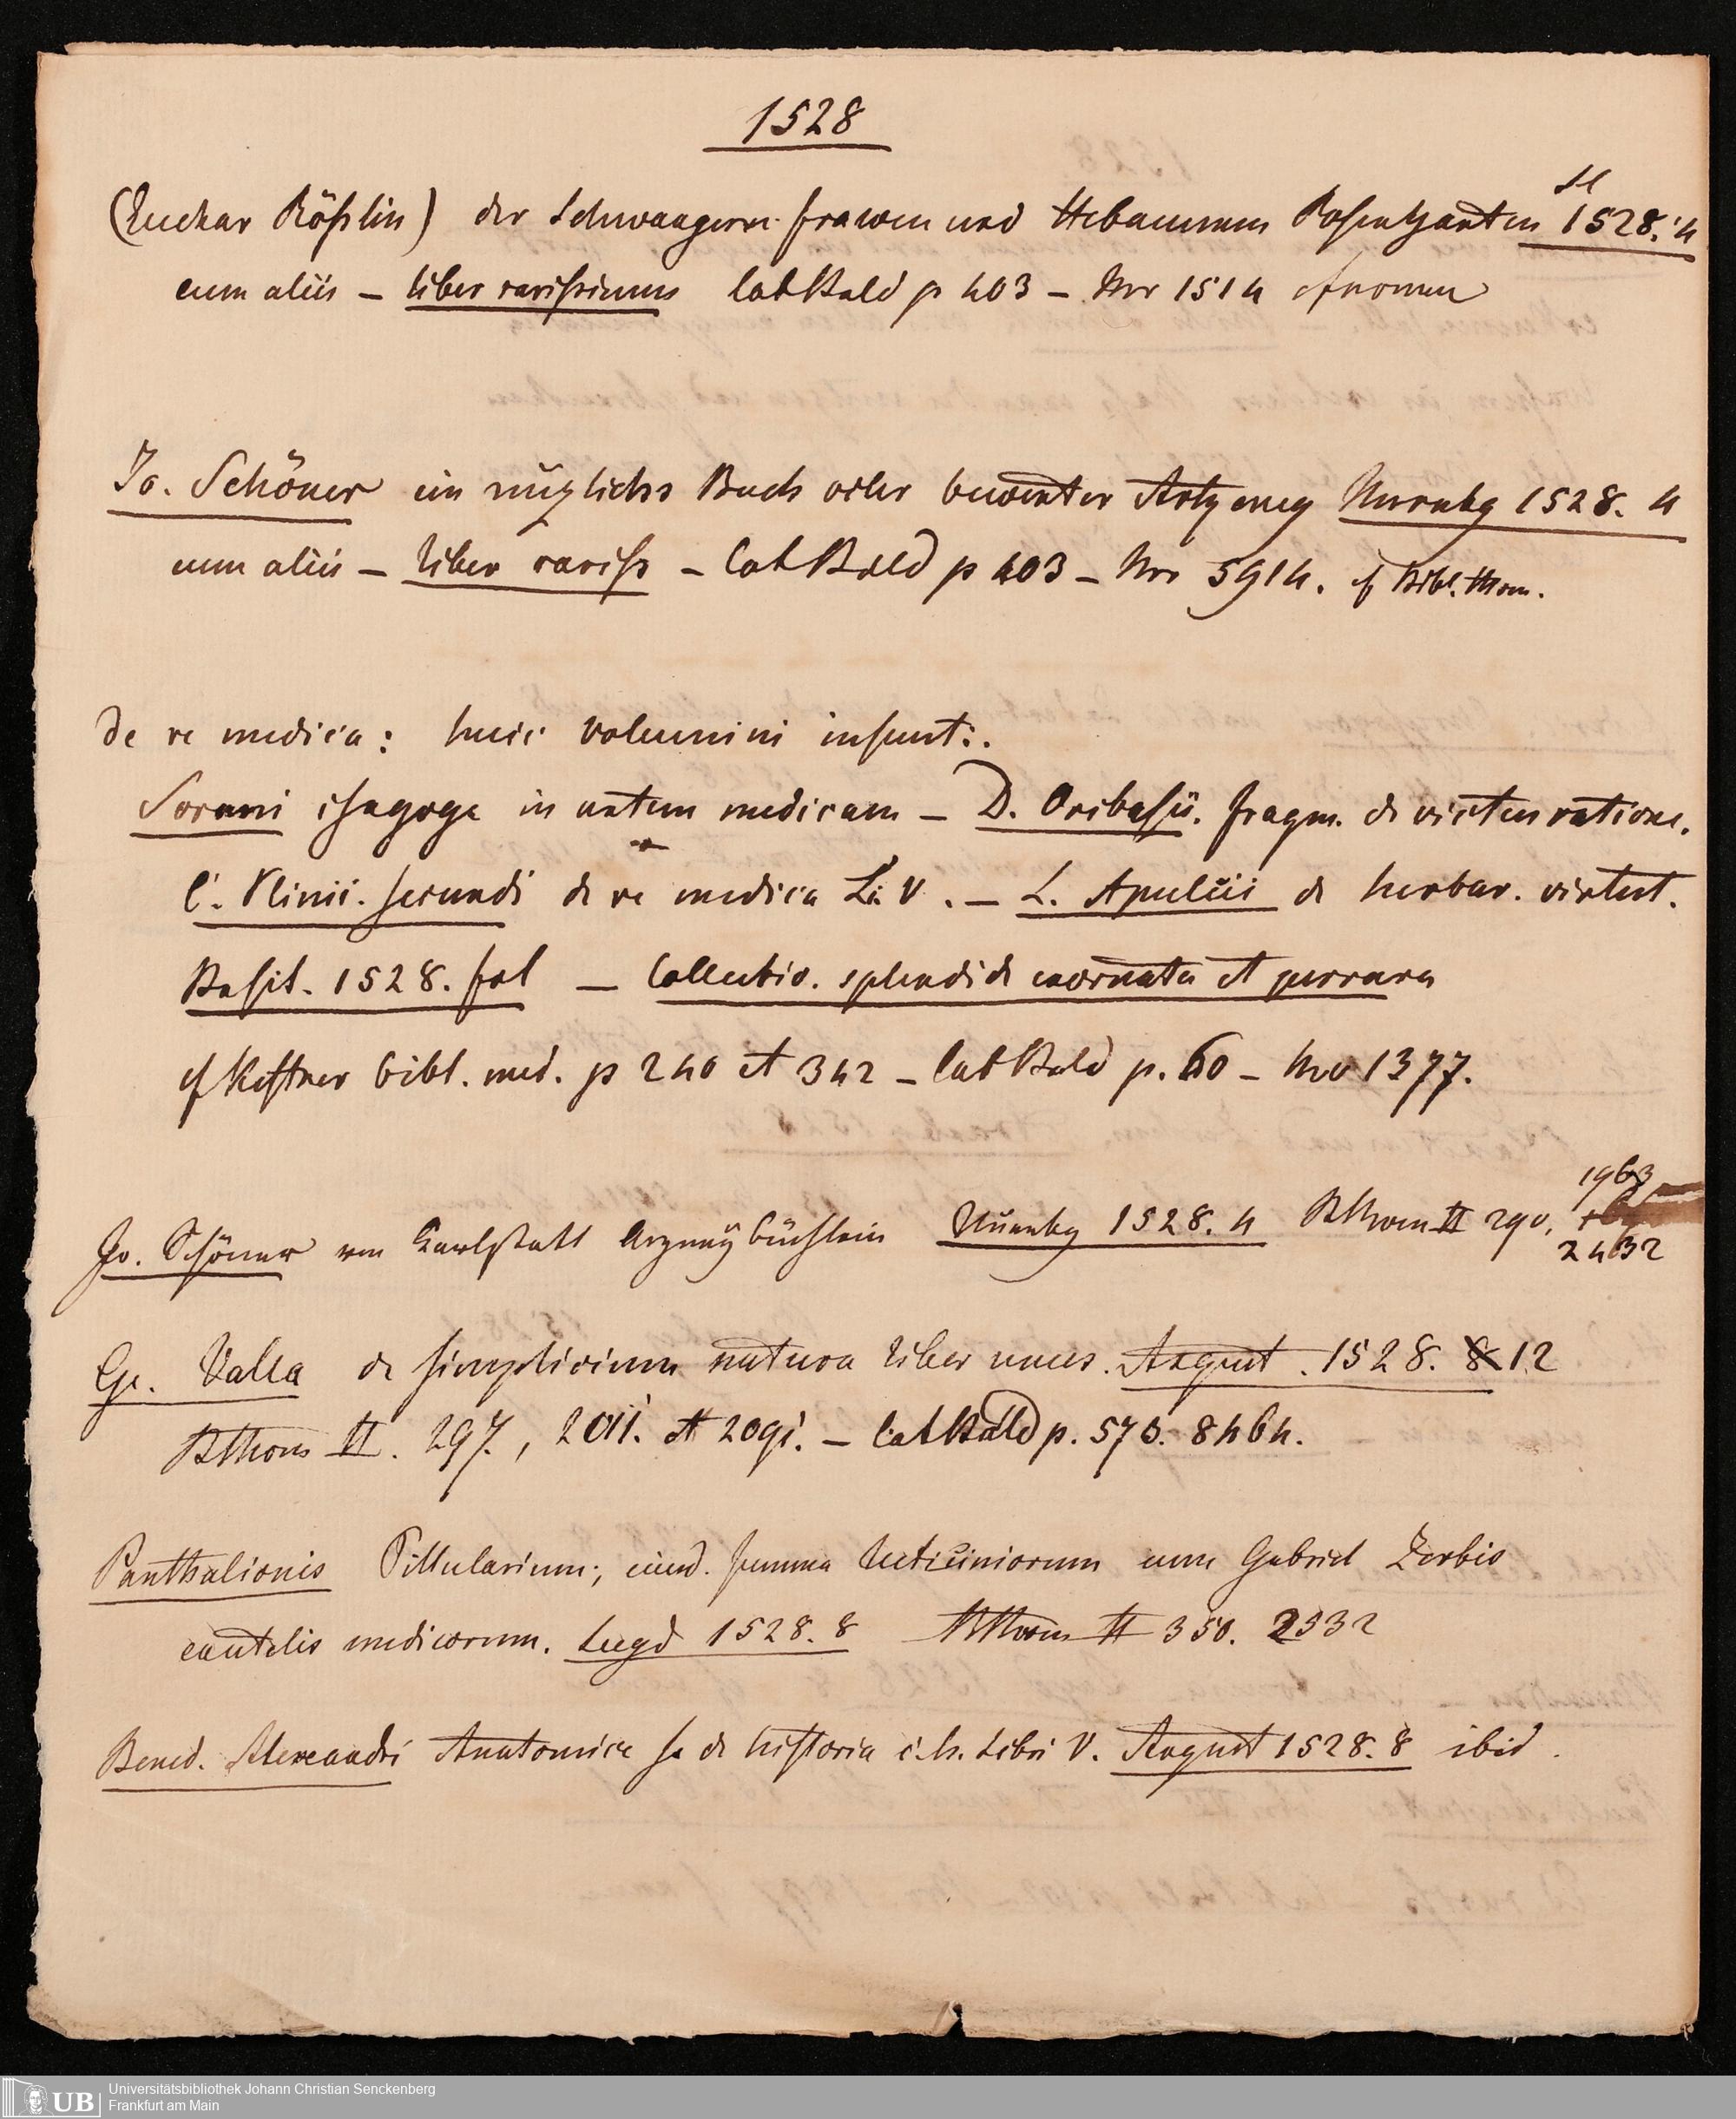 1528
(Euchar Rößlin) der Schwangern frawen und Hebammen Rosengarten sl 1528. 4
cum aliis – liber rarissimus Cat Bald p 403 – Nro 1514
Jo. Schöner ein nüzlichs Buch viler bewerter Artzeney Nurnbg 1528. 4
cum aliis – liber rariss – Cat Bald p 403 – Nro 5914. cf Bibl. Thom.
De re medica: huic volumini insunt:.
Sorani isagoge in artem medicam – D. Oribasii. fragm. de victus ratione.
C. Plinii. secundi de re medica Li. V. – L. Apuleii de herbar. virtut.
Basil. 1528. fol – Collectio. splendide exornata et perrara
cf Kestner bibl. med. p 240 et 342 – Cat Bald p. 60 – Nro 1377.
Jo. Schöner von Karlstatt Arzneÿbüchlein Nürnbg 1528. 4 BThom II 290. 1963
2432
Ge. Valla de simplicium natura liber unus. August. 1528. 8 12
BThom II. 297., 2011. et 2091. – Cat Bald p. 573. 8464.
Panthalionis Pillularium; eiusd. summa lacticiniorum cum Gabriel Zerbis
cautelis medicorum. Lugd 1528. 8 BThom II 350. 2532
Bened. Alexandri Anatomice s. de historia c. h. Libri V. August 1528. 8 ibid.
Universitätsbibliothek Johann Christian Senckenberg
Frankfurt am Main
UB